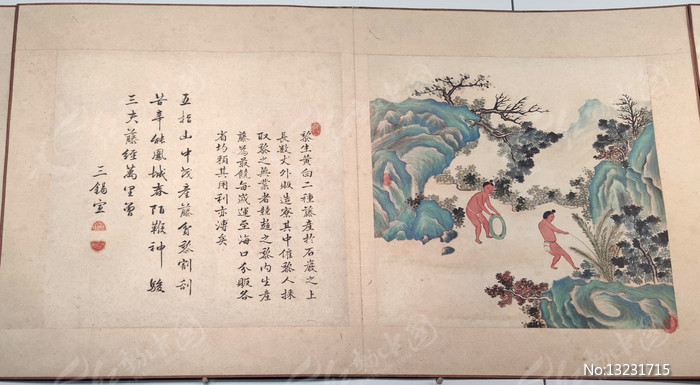 黎生黃白二種藤產於石巖之上
長數丈外販造寮其中僱黎人採
取黎之無業者競趨之黎內生產
藤為最饒每歲運至海口分販各
省均賴其用利亦溥矣
五指山中茂產藤貧黎割刮
苦辛能鳳城春陌鞭神駿
三尺藤經萬里曾
三錫
No:13231715